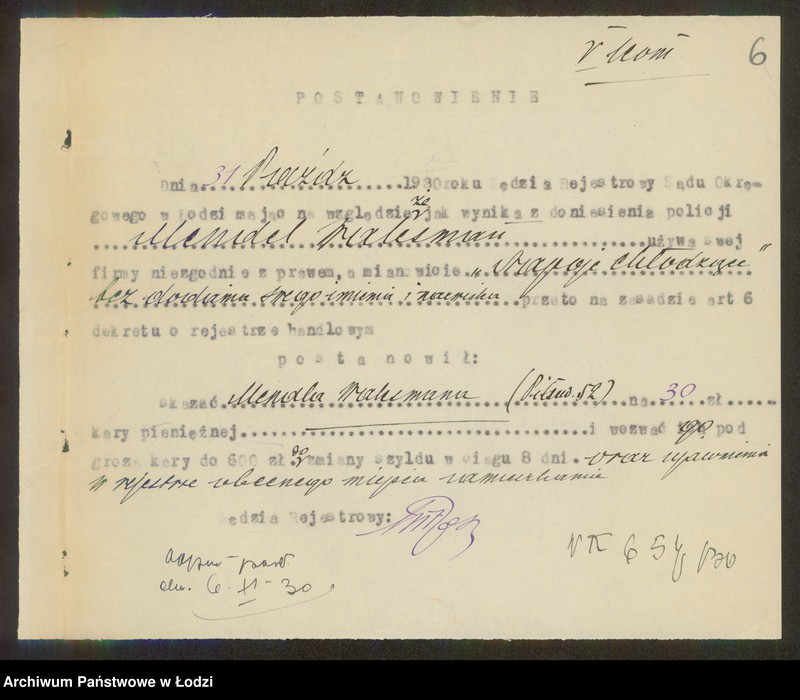 V Kom 6
POSTANOWIENIE
Dnia 31 Paźdz 1930 roku Sędzia Rejestrowy Sądu Okrę-
gowego w Łodzi mając na względzie że jak wynika z doniesienia policji
Mendel używa swej
firmy niezgodnie z prawem, a mianowicie "Napoje chłodzące"
bez dodania swego imienia i nazwiska przeto na zasadzie art 6
dekretu o rejestrze handlowym
postanowił:
skazać Mendla (Piłsud. 52) na 30 zł
kary pieniężnej i wezwać go pod
grozą kary do 600 zł. do zmiany szyldu w ciągu 8 dni. oraz ujawnienia
w rejestrze obecnego miejsca zamieszkania
Sędzia Rejestrowy:
dn. 6. XI - 30
Archiwum Państwowe w Łodzi